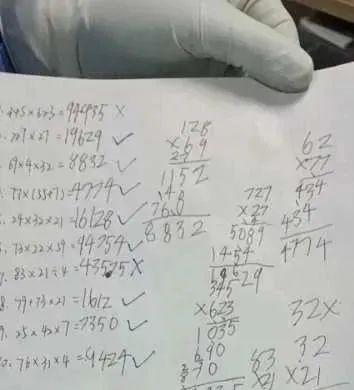 445×623=94935 ×
727×27=19629 ✓
69×4×32=8832 ✓
77×(55+7)=4774 ✓
24×32×21=16128 ✓
73×22×59=94754 ✓
7. 83×21÷4=43575 ×
8. 79+73×21=1612 ✓
9. 25×42×7=7350 ✓
76×31×4=9424 ✓
128
×69
1152
768
8832
727
×27
5089
1454
19629
345
×623
1035
690
62
×77
434
434
4774
32×
32
×21
83
×21